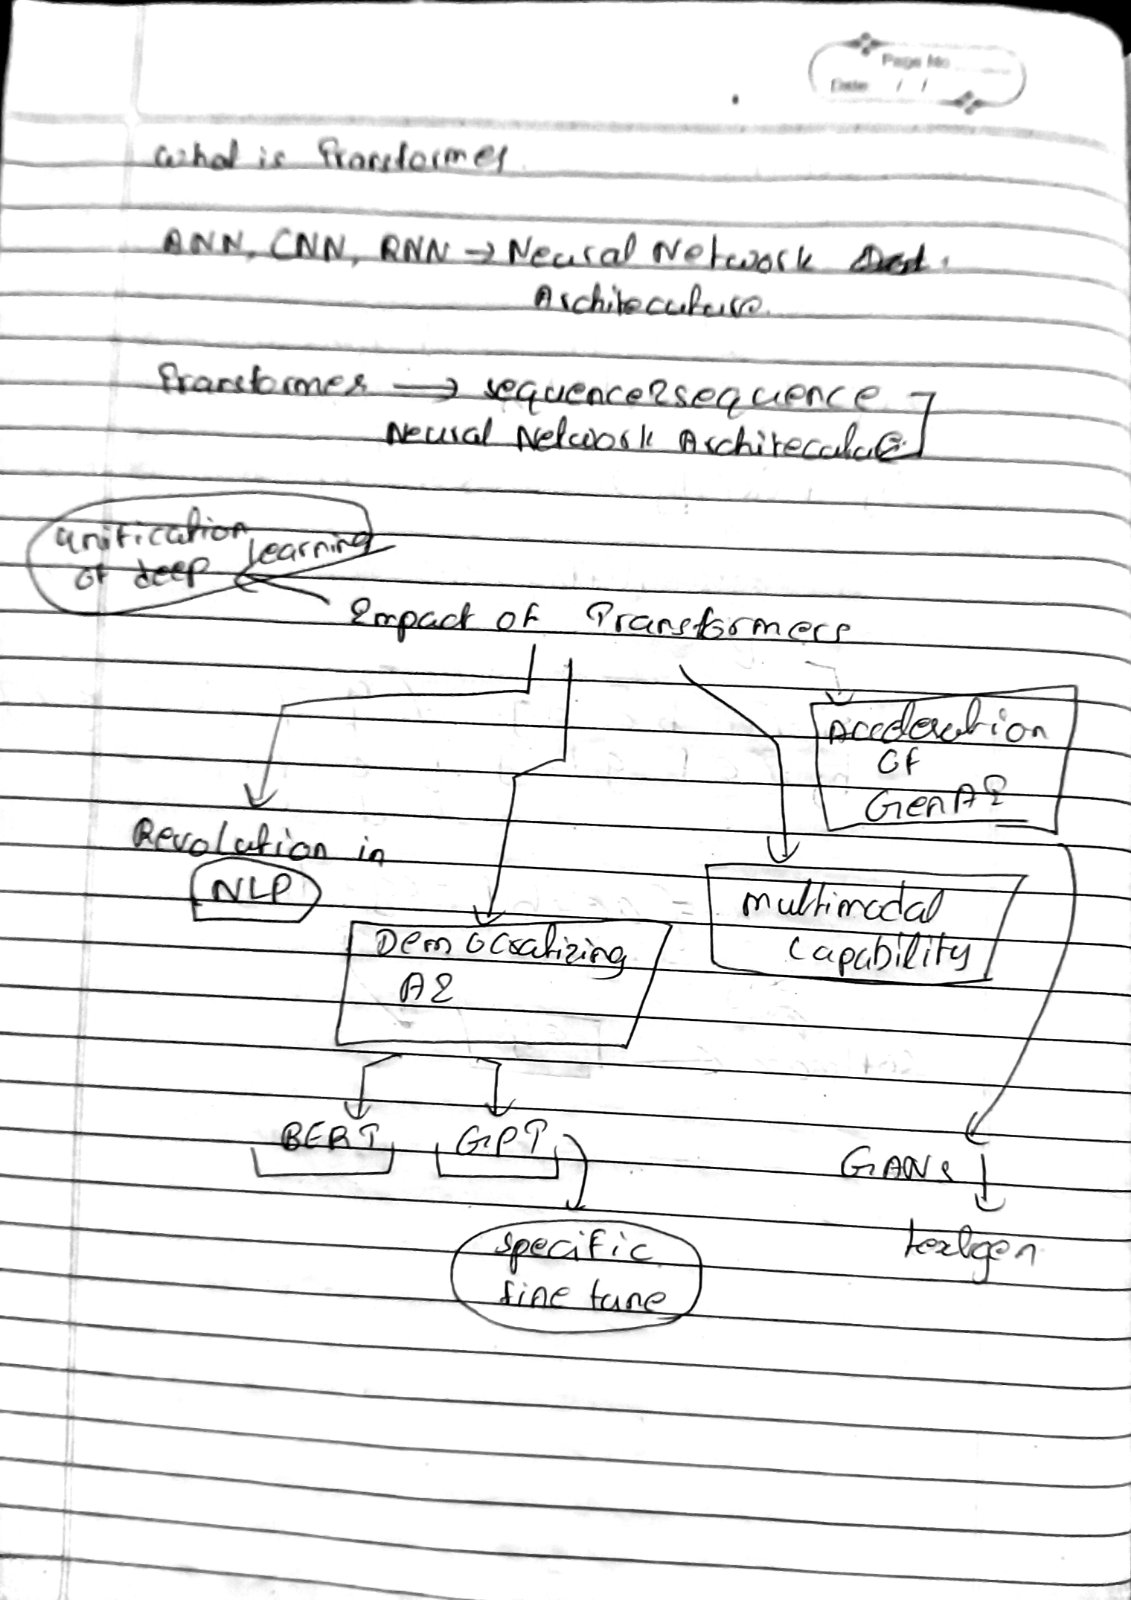 Page No.
Date / /
What is Transformer
ANN, CNN, RNN → Neural Network
Architecuture.
Transformer ⟹ sequence2sequence
Neural Network Architecature
unification
of deep learning
Impact of Transformers
Acceleration
of
GenAI
Revolution in
NLP
multimodal
capability
Democratizing
AI
BERT GPT
GANs
textgen
specific
fine tune